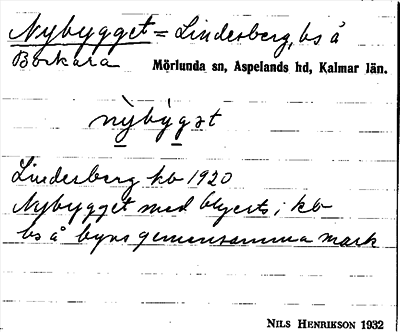 Nybygget = Linderberg, bs å
Bockara Mörlunda sn, Aspelands hd, Kalmar län.
nỳby̖gət
Linderberg kb 1920
Nybygget med blyerts i kb
bs å byns gemensamma mark
NILS HENRIKSON 1932